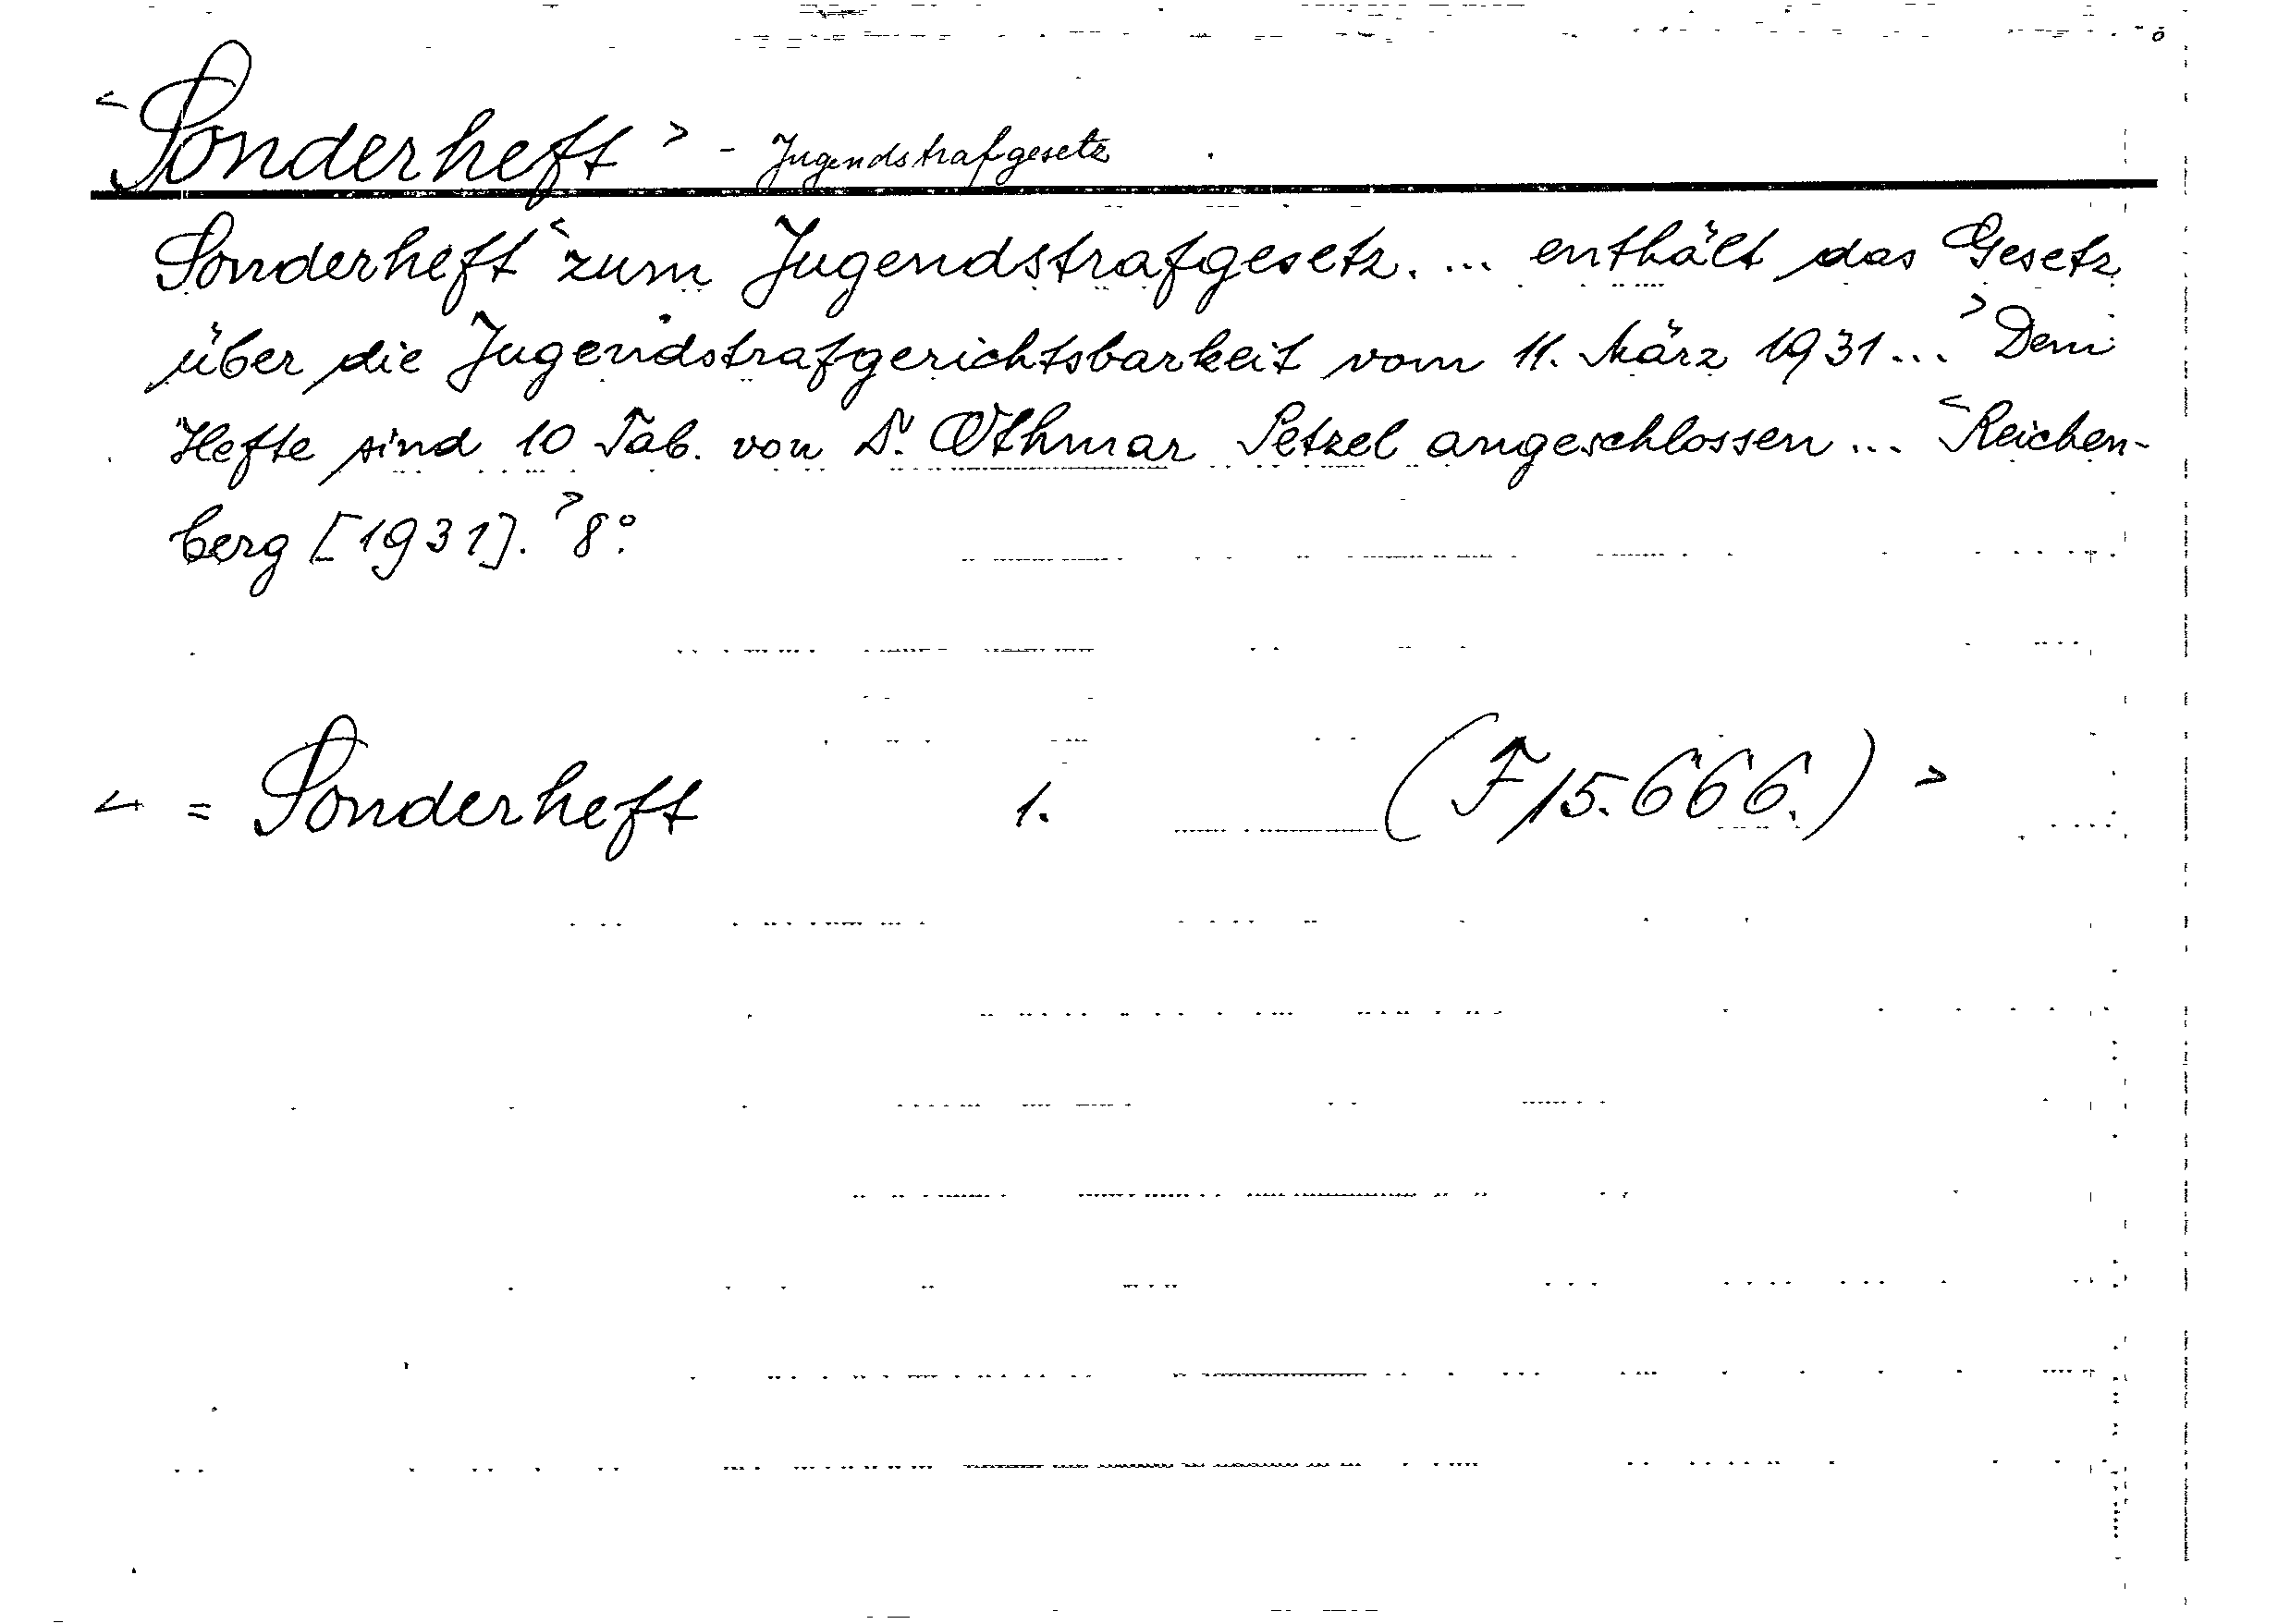 <Sonderheft> - Jugendstrafgesetz
Sonderheft <zum Jugendstrafgesetz. ... enthält das Gesetz
über die Jugendstrafgerichtsbarkeit vom 11. März 1931...> Dem
Hefte sind 10 Tab. von Dr. Othmar Petzel angeschlossen ... <Reichen-
berg [1931].> 8°.
< = Sonderheft 1. (F 15.666.) >